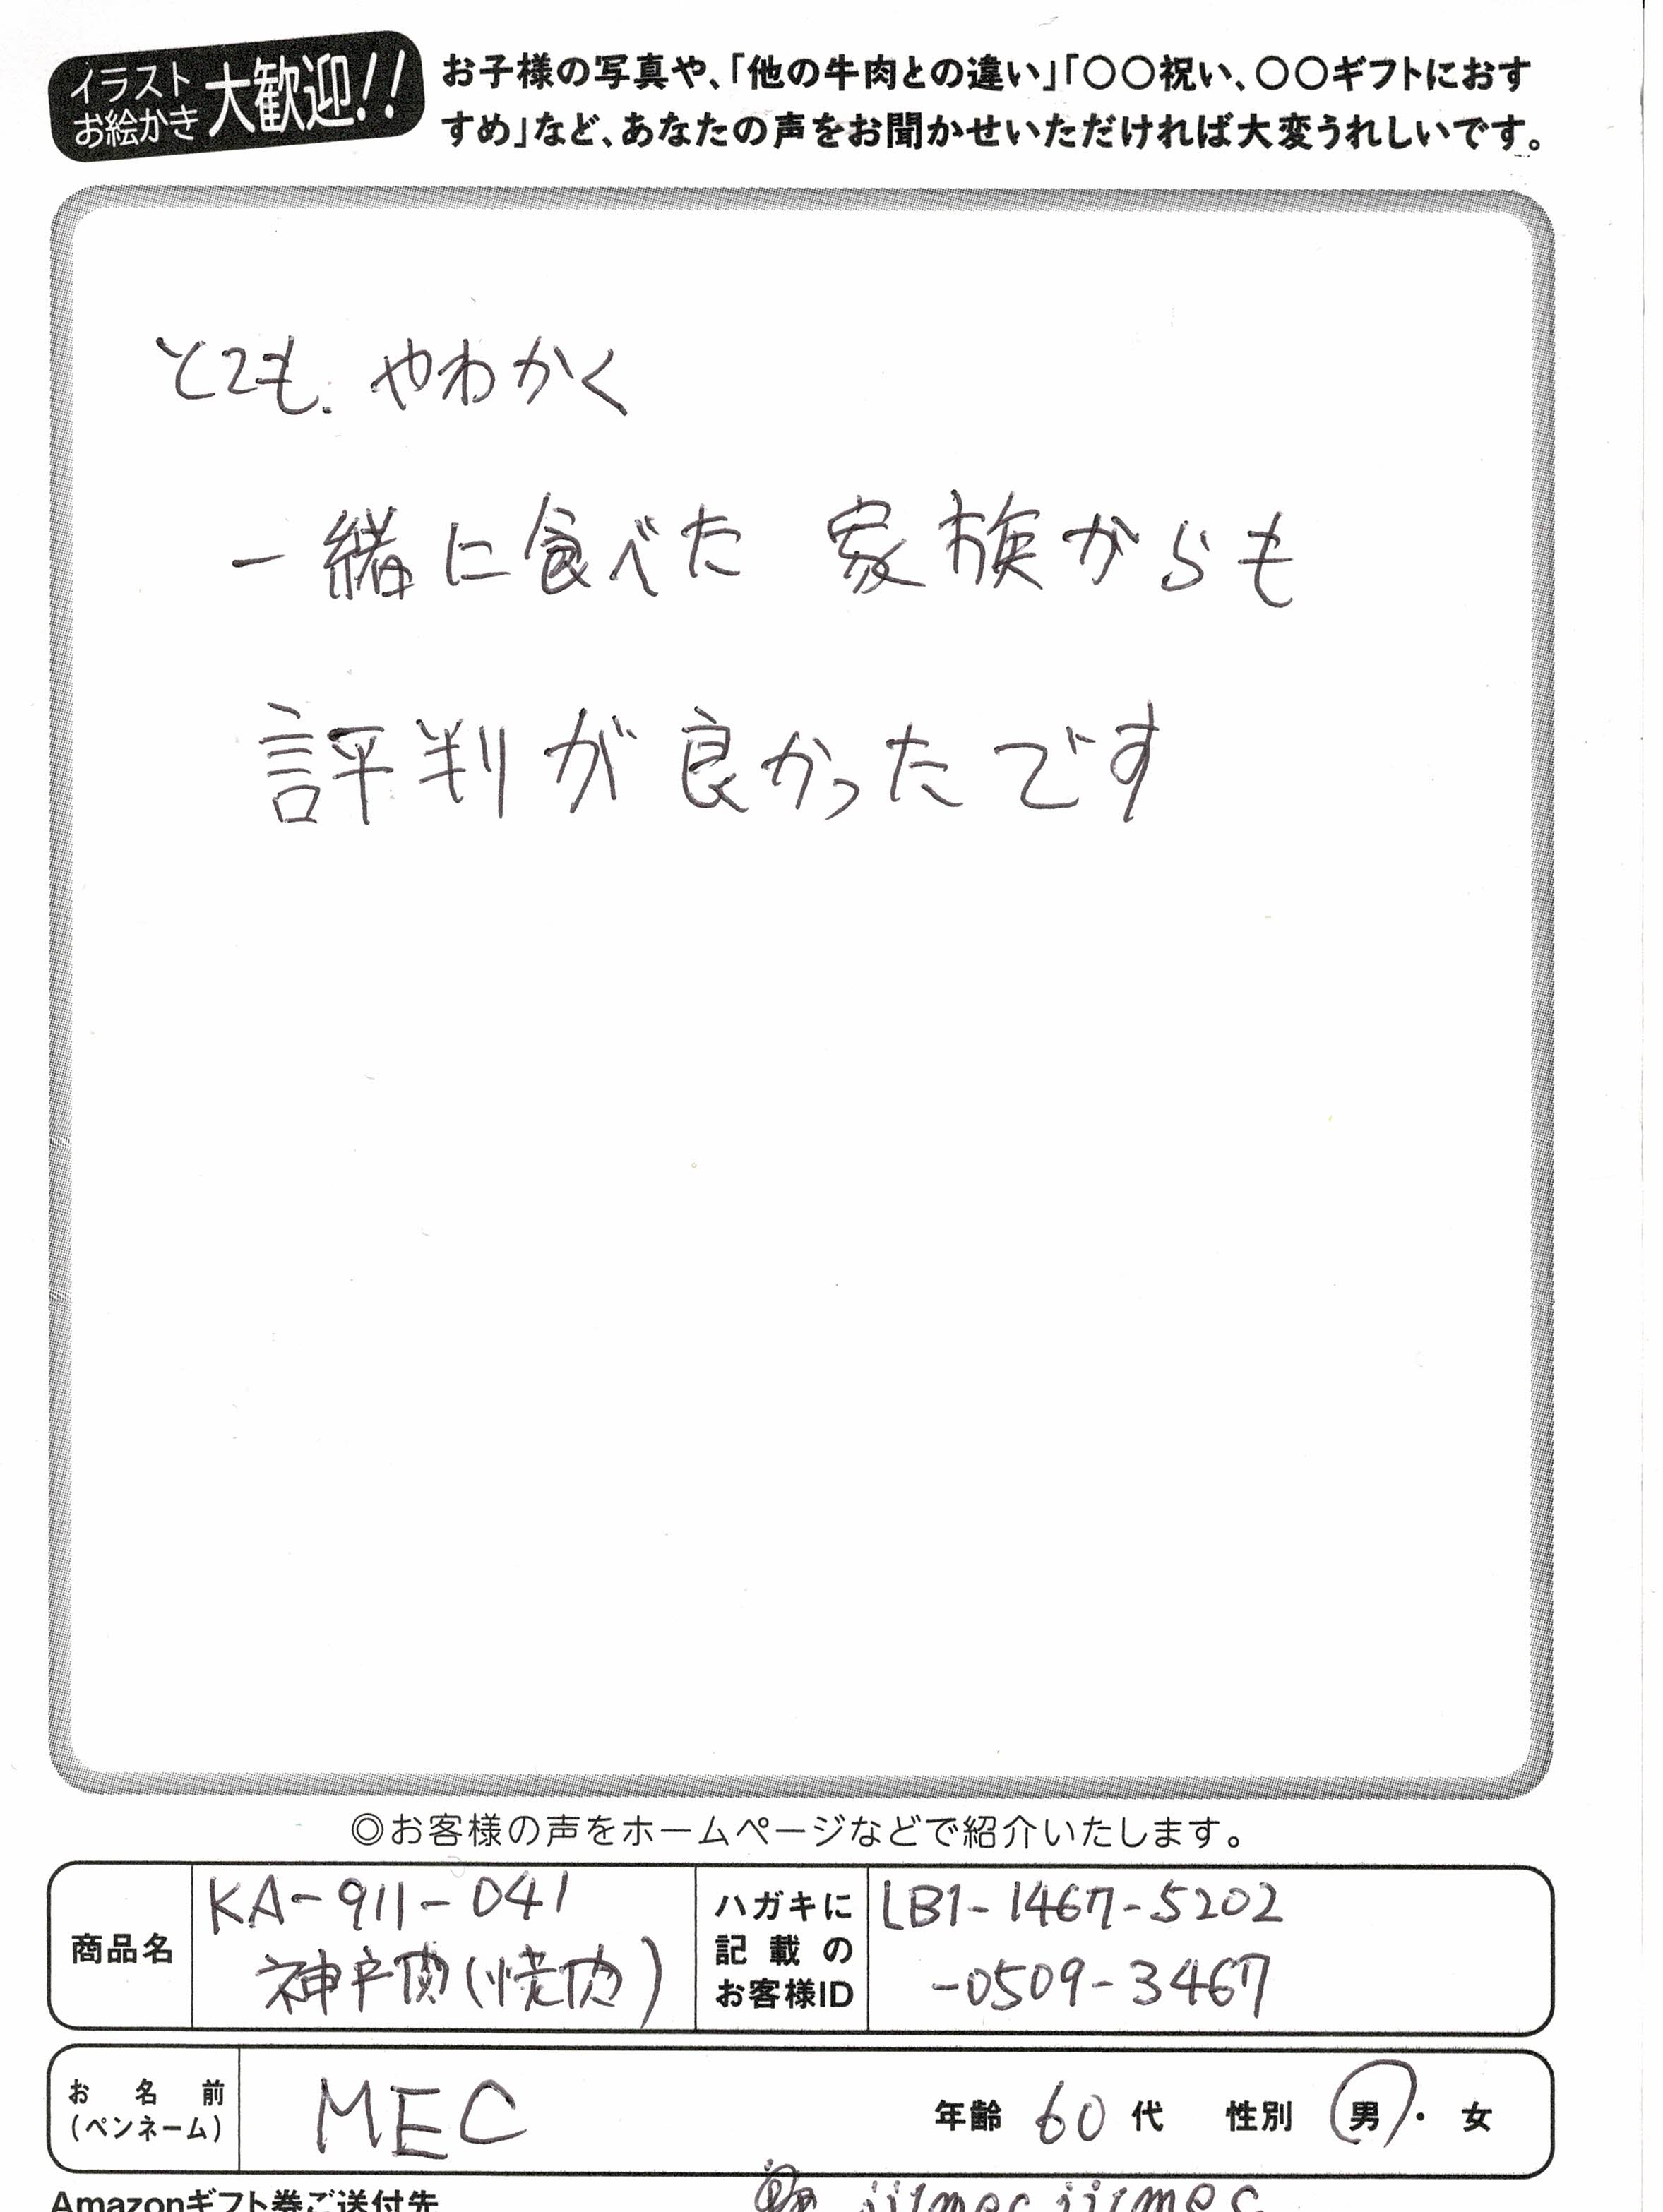 イラスト
お絵かき
大歓迎!!
お子様の写真や、「他の牛肉との違い」「〇〇祝い、〇〇ギフトにおす
すめ」など、あなたの声をお聞かせいただければ大変うれしいです。
とても、やわかく
一緒に食べた 家族からも
評判が良かったです
◎お客様の声をホームページなどで紹介いたします。
商品名
KA-911-041
神戸肉(焼肉)
ハガキに
記載の
お客様ID
LB1-1467-5202
-0509-3467
お名前
(ペンネーム)
MEC
年齢 60 代 性別 男・女
Amazonギフト券ご送付先